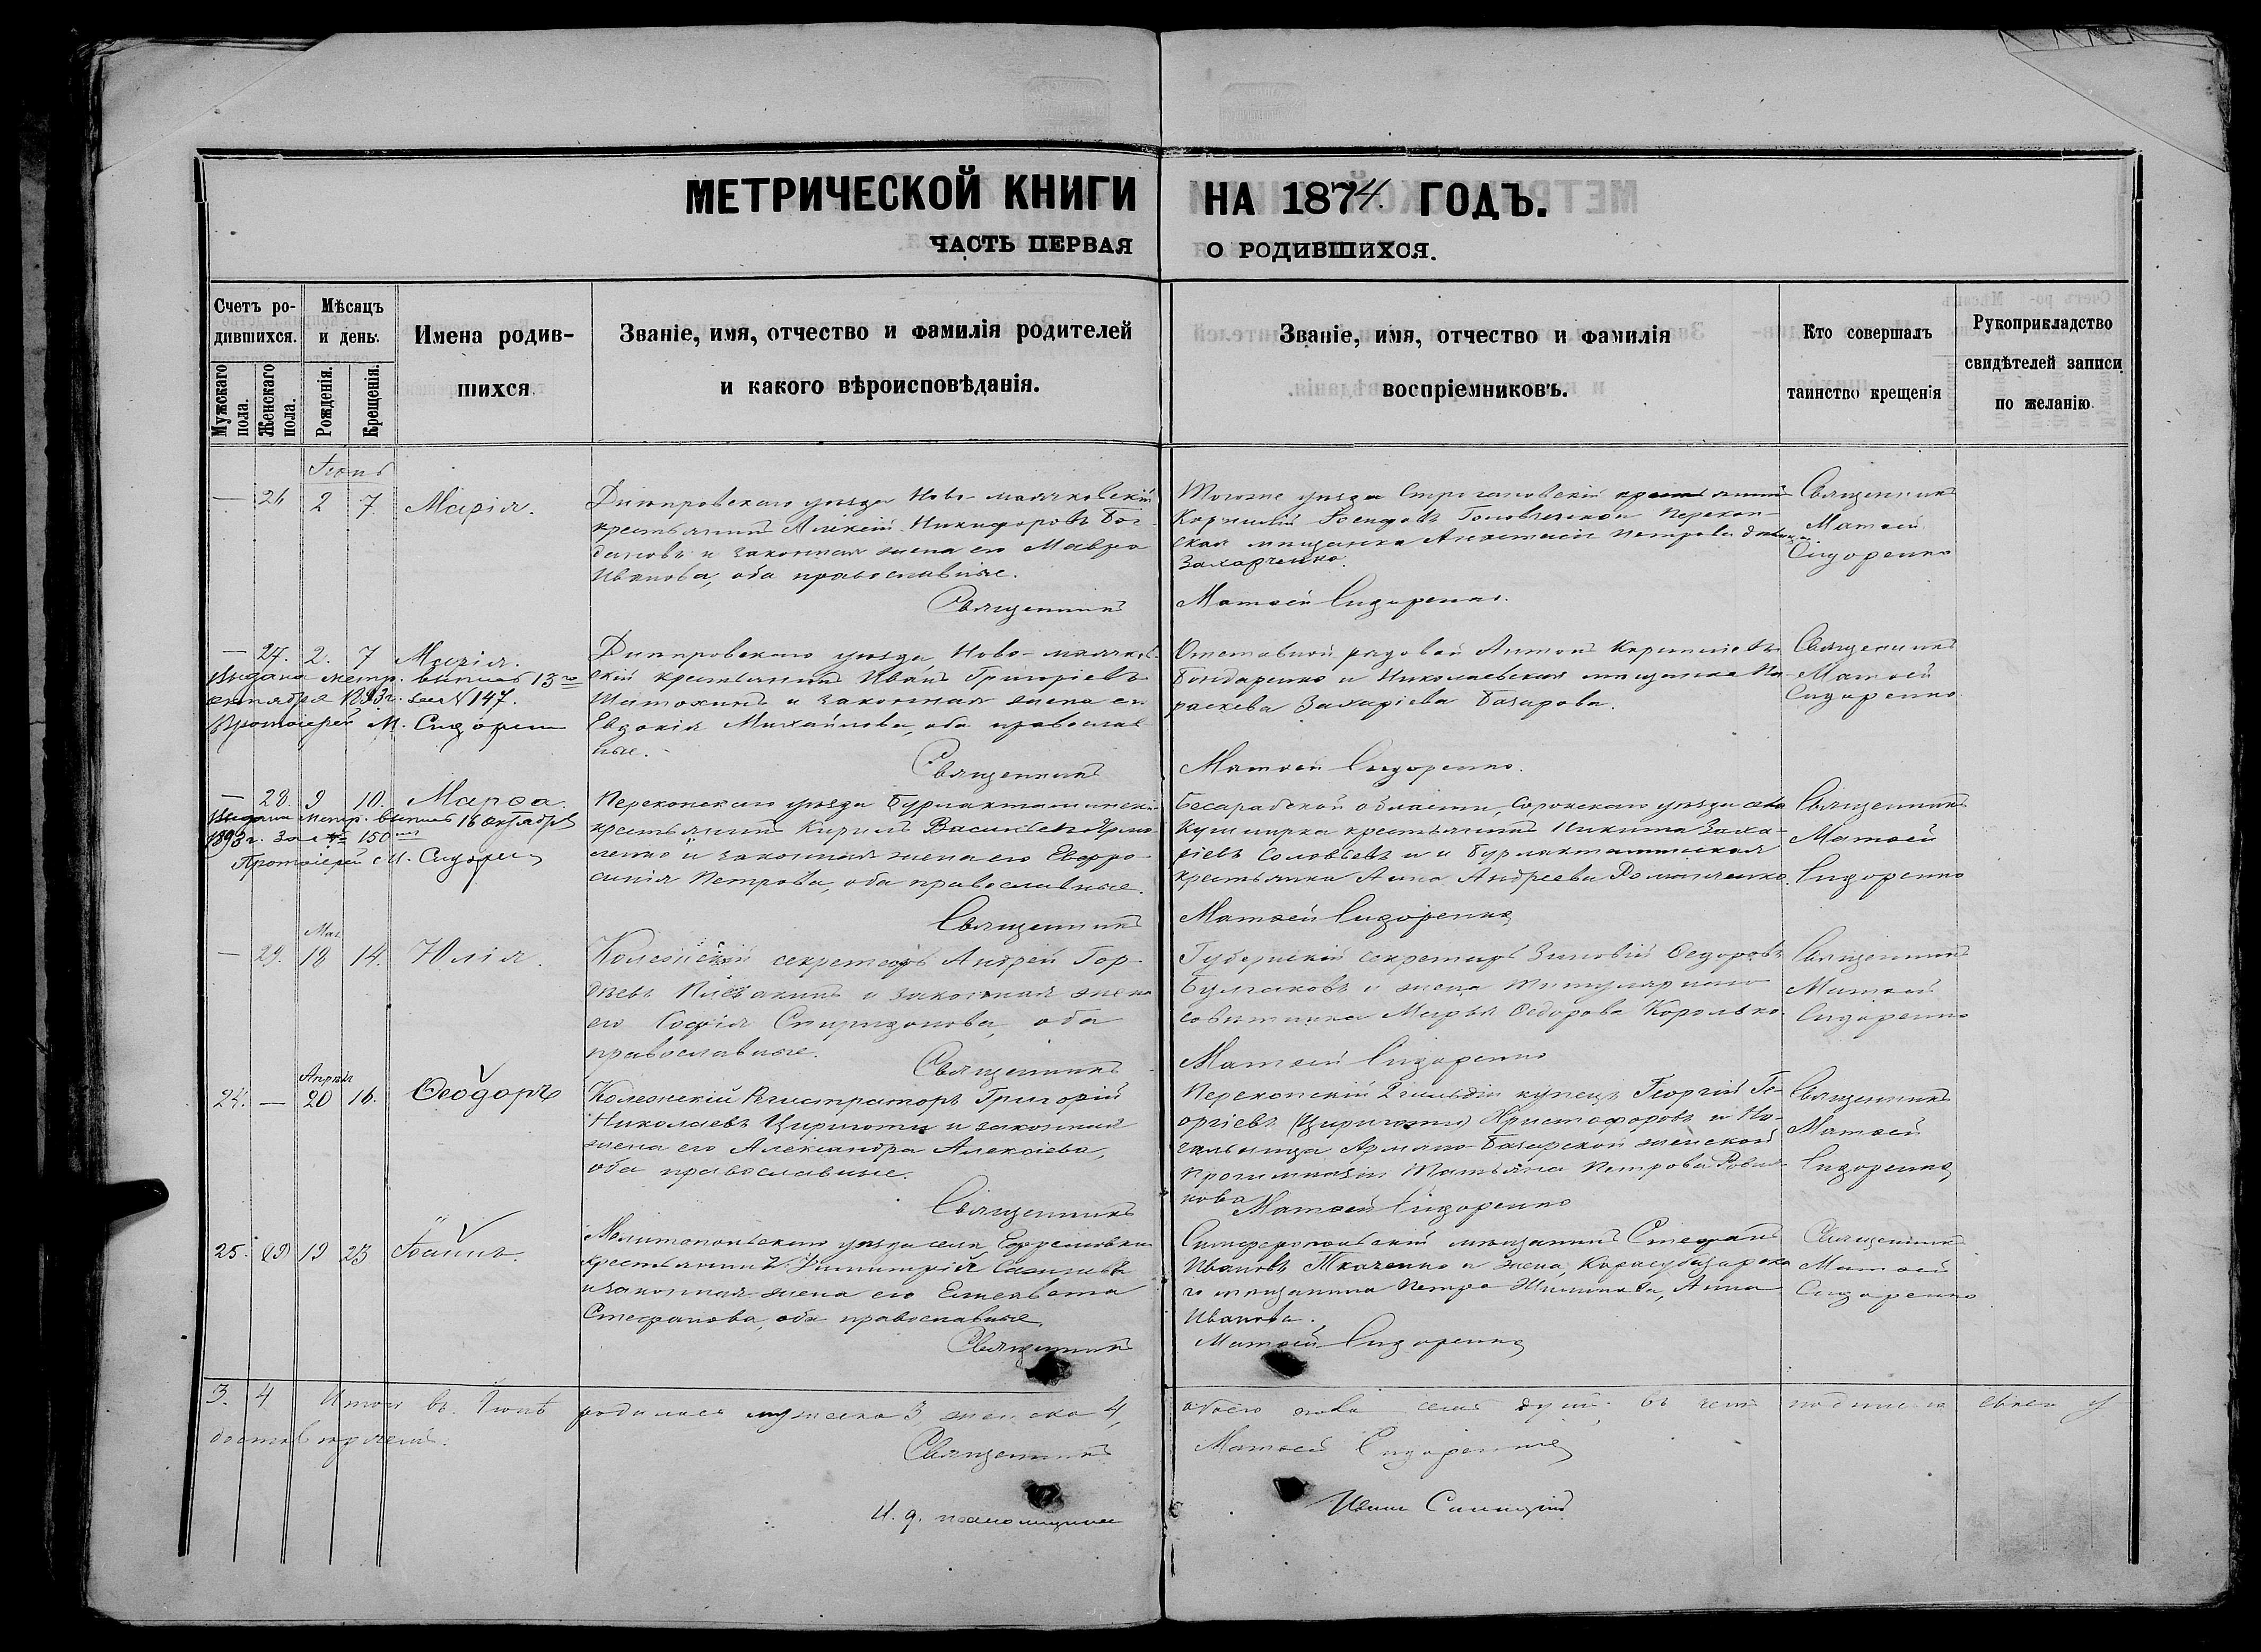 МЕТРИЧЕСКОЙ КНИГИ НА 1874 ГОДЪ.
ЧАСТЬ ПЕРВАЯ О РОДИВШИХСЯ.
Счетъ ро-
дившихся.
Мужскаго пола.
Женскаго пола.
Мѣсяцъ
и день.
Рожденія.
Крещенія.
Имена родив-
шихся
Званіе, имя, отчество и фамилія родителей
и какого вѣроисповѣданія.
Званіе, имя, отчество и фамилія
воспріемниковъ.
Кто совершалъ
таинство крещенія
Рукоприкладство
свидѣтелей записи
по желанію.
— 2 7 Марія.
Днѣпровскаго уѣзда Ново-маячковскій
крестьянинъ Никифоровъ Бог-
дановъ и законная жена его Мавра
Иванова, оба православные.
Священникъ
Тогоже уѣзда Строгановскій крестьянинъ
Захарченко.
Матѳей Сидоренко.
Священникъ
Матѳей
Сидоренко
— 27. 2. 7 Марія.
Выдана метр. выпись 13го
октября 1893 г. за №147.
Протоіерей М. Сидорен
Днѣпровскаго уѣзда, Ново-маячков-
скій крестьянинъ Иванъ Григоріевъ
и законная жена его
Евдокія Михайлова, оба православ
ные.
Священникъ
Отставной рядовой Антонъ Корниліевъ
Бондаренко и Николаевская мѣщанка Па
раскева Захаріева Базарова.
Матѳей Сидоренко.
Священникъ
Матѳей
Сидоренко
— 28. 9 10. Марѳа.
Выдана метр. выпись 16 октября
1893 г. за № 150
Протоіерей М. Сидорен
Перекопскаго уѣзда
крестьянинъ Кирилъ Васильевъ
ленко и законная жена его Евфро-
синія Петрова, оба православные.
Священникъ
Бесарабской области, Сорокскаго уѣзда села
Кушмирка крестьянинъ Никита Заха-
ріевъ Соловьевъ и
крестьянка Анна Андреева Романченко.
Матѳей Сидоренко
Священникъ
Матѳей
Сидоренко
Мая
— 29. 18 14. Юлія.
Колежскій секретарь Андрей Гор-
дѣевъ и законная жена
его Софія Спиридонова, оба
православные.
Священникъ
Губернскій секретарь Зиновій Ѳедоровъ
Булгаковъ и жена титулярнаго
совѣтника Марья Ѳедорова Королько.
Матѳей Сидоренко
Священникъ
Матѳей
Сидоренко
Апрѣля
24. — 20 16. Ѳеодоръ
Колежскій Регистраторъ Григорій
Николаевъ Цириготи и законная
жена его Александра Алексѣева,
оба православные.
Священникъ
Перекопскій 2 гильдіи купецъ Георгій Ге-
оргіевъ (Цириготи) Христофоровъ и На-
чальница Армяно-Базарской женской
прогимназіи Татьяна Петрова
нова
Матѳей Сидоренко
Священникъ
Матѳей
Сидоренко
25. 19 23 Іоаннъ.
Мелитопольскаго уѣзда села Ефремовки
крестьянинъ Димитрій
и законная жена его Елисавета
Стефанова, оба православные,
Священникъ
Симферопольскій мѣщанинъ Стефанъ
Ивановъ Ткаченко и жена, Карасубазарска
го мѣщанина Петра Анна
Иванова.
Матѳей Сидоренко
Священникъ
Матѳей
Сидоренко
3. 4 Итого въ Іюнѣ родилось мужеска 3, женска 4, обоего пола семь душъ; въ чемъ
Священникъ Матѳей Сидоренко
И. д. псаломщика Иванъ